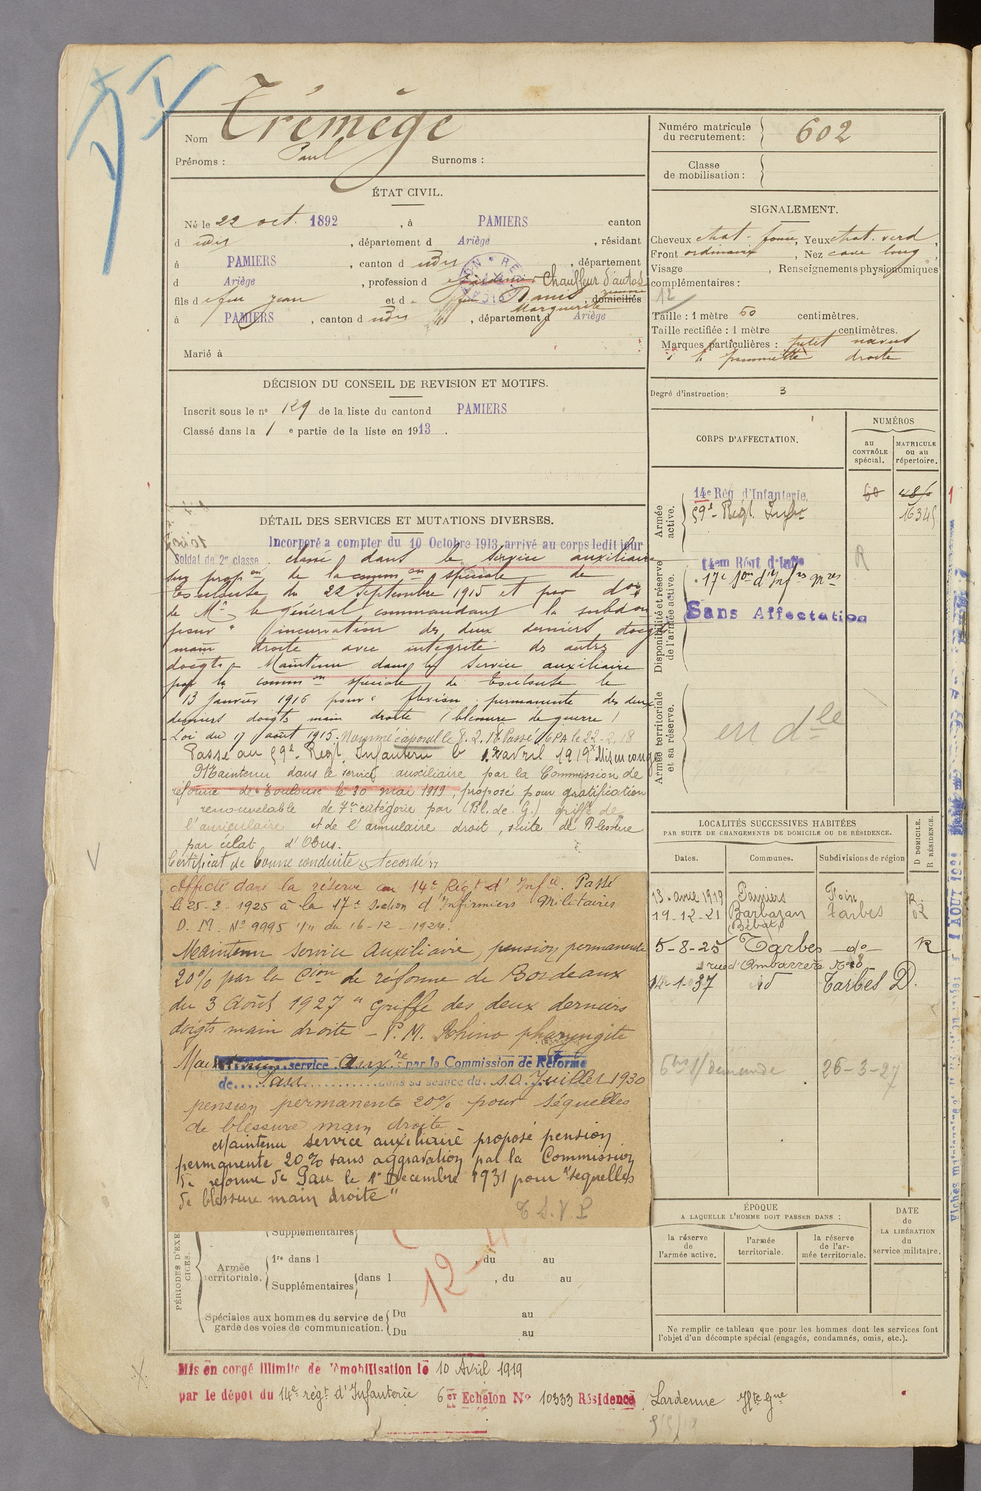 Nom Trémège
Prénoms : Paul Surnoms :
Numéro matricule du recrutement: 602
Classe de mobilisation :
ÉTAT CIVIL.
Né le 22 oct. 1892, à PAMIERS canton
d udis, département d Ariège, résidant
à PAMIERS, canton d udis, département
d Ariège, profession d Chauffeur d'autos
fils d e feu Jean et d e feue Marguerite domiciliés
à PAMIERS, canton d udis, département d Ariège
Marié à
SIGNALEMENT.
Cheveux chat. foncé, Yeux chat. verd,
Front ordinaire, Nez cave long,
Visage , Renseignements physionomiques
complémentaires :
12
Taille : 1 mètre 60 centimètres.
Taille rectifiée : 1 mètre centimètres.
Marques particulières : petit naevus
à la pommette droite
Degré d'instruction: 3
DÉCISION DU CONSEIL DE REVISION ET MOTIFS.
Inscrit sous le n° 129 de la liste du canton d PAMIERS
Classé dans la 1 e partie de la liste en 1913.
CORPS D'AFFECTATION.
NUMÉROS
au CONTRÔLE spécial.
MATRICULE ou au répertoire.
Armée active.
14e Rég d'Infanterie.
60
59e Regt Infie 16345
Disponibilité et réserve de l'armée active.
14eme Régt d'Infie
17e Son d'Infrs Mres
Sans Affectation
R
Armée territoriale et sa réserve.
en dle
DÉTAIL DES SERVICES ET MUTATIONS DIVERSES.
Incorporé à compter du 10 Octobre 1913 arrivé au corps ledit jour
Soldat de 2e classe. classé dans le service auxiliaire
sur propon de la common spéciale de
Toulouse du 22 septembre 1915 et par don
de Mr le général commandant la subdon
pour "incurvation des deux derniers doigts
main droite avec intégrité des autres
doigts". Maintenu dans le service auxiliaire
par la common spéciale de Toulouse le
13 janvier 1916 pour "flexion permanente des deux
derniers doigts main droite (blessure de guerre)
Loi du 17 août 1915. Nommé caporal le
Passé au 59e Regt Infanterie le 1er avril 1919 Mis en congé
Maintenu dans le service auxiliaire par la Commission de
réforme de Toulouse le 30 mai 1919, proposé pour gratification
renouvelable de 7e catégorie par (Bl. de G) griffe de
l'auriculaire et de l'annulaire droit, suite de Blessure
par éclat d'Obus.
Certificat de bonne conduite "Accordé"
Affecté dans la réserve au 14e Régt d'Infie. Passé
le 25-3-1925 à la 17e Section d'Infirmiers Militaires
D. M. N° 9995 du 16-12-1924.
Maintenu Service Auxiliaire, pension permanente
20% par la Cion de réforme de Bordeaux
du 3 Août 1927 "Griffe des deux derniers
doigts main droite - P.M. Rhino pharyngite
Maintenu service auxre par la Commission de Réforme
de Pau dans sa séance du 10 Juillet 1930
pension permanente 20% pour séquelles
de blessure main droite
Maintenu service auxiliaire proposé pension
permanente 20% sans aggravation par la Commission
de réforme de Pau le 1er Décembre 1931 pour "séquelles
de blessure main droite"
LOCALITÉS SUCCESSIVES HABITÉES
PAR SUITE DE CHANGEMENTS DE DOMICILE OU DE RÉSIDENCE.
Dates. Communes. Subdivisions de région D DOMICILE. R RÉSIDENCE.
13 avril 1919 Pamiers Foix R
19-12-21 Barbazan Tarbes R
(Débat)
5-8-25 Tarbes do R
rue d'Embarrère N°
14-1-37 id Tarbes D.
s/demande 26-3-27
ÉPOQUE
A LAQUELLE L'HOMME DOIT PASSER DANS :
la réserve de l'armée active.
l'armée territoriale.
la réserve de l'armée territoriale.
DATE de LA LIBÉRATION du service militaire.
Ne remplir ce tableau que pour les hommes dont les services font
l'objet d'un décompte spécial (engagés, condamnés, omis, etc.).
Supplémentaires
PÉRIODES D'EXERCICES.
Armée territoriale. 1re dans l , du au
Supplémentaires dans l , du au
12
Spéciales aux hommes du service de garde des voies de communication. Du au
Du au
Mis en congé illimité de démobilisation le 10 Avril 1919
par le dépôt du 14e régt d'Infanterie 6er Echelon N° 10333 Résidence Lardenne Hte Gne